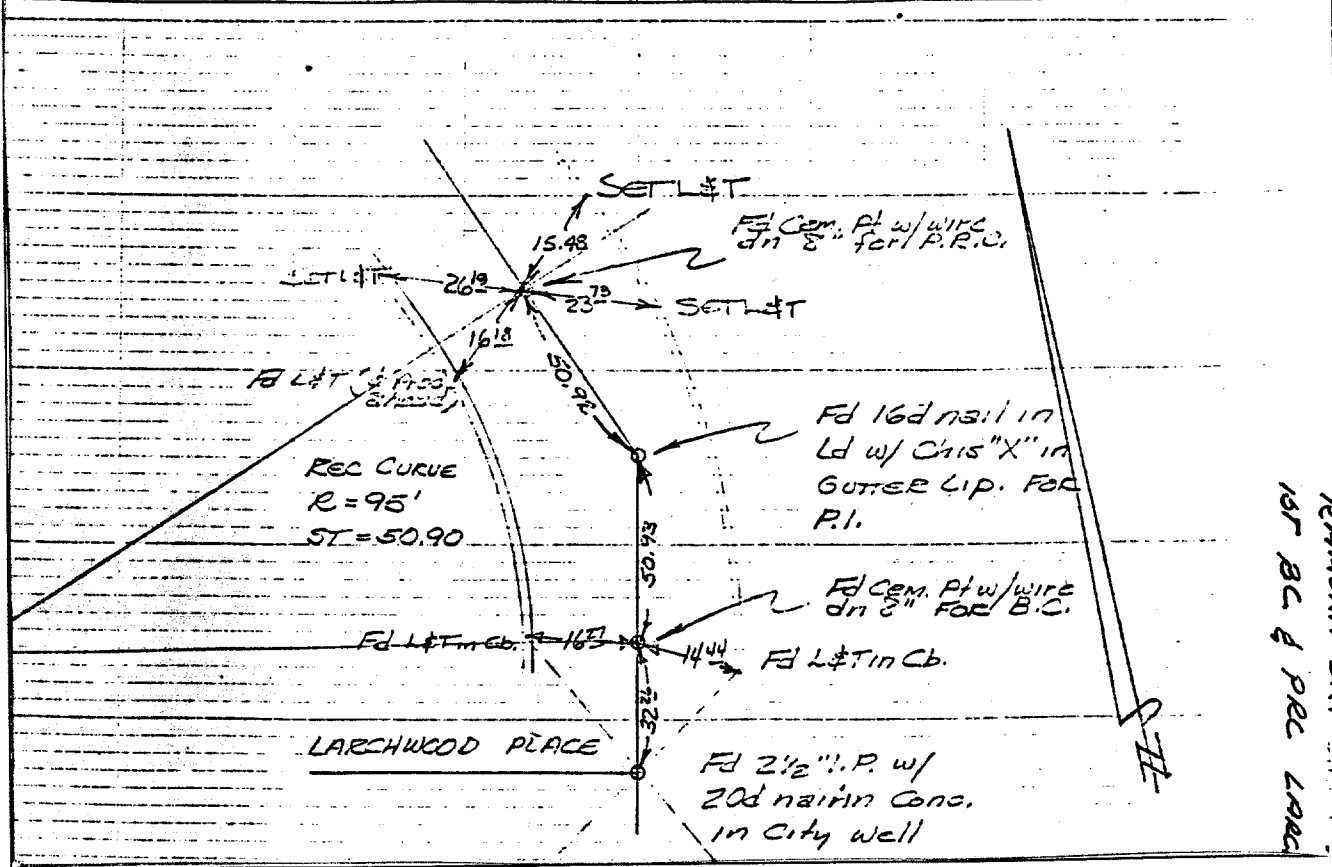 SET L&T
15.48
Fd Cem. Pt w/ wire
dn 8" for P.R.C.
SET L&T
26 19
23 73
SET L&T
16 18
Fd L&T
ahead
50.92
Fd 16d nail in
Ld w/ Chis "X" in
GUTTER LIP. FOR
P.I.
REC CURVE
R = 95'
ST = 50.90
50.43
Fd Cem. Pt w/ wire
dn 8" FOR B.C.
Fd L&T in Cb.
14 44
Fd L&T in Cb.
32 26
LARCHWOOD PLACE
Fd 2½" I.P. w/
20d nail in Conc.
in City well
1ST BC & PRC LARC